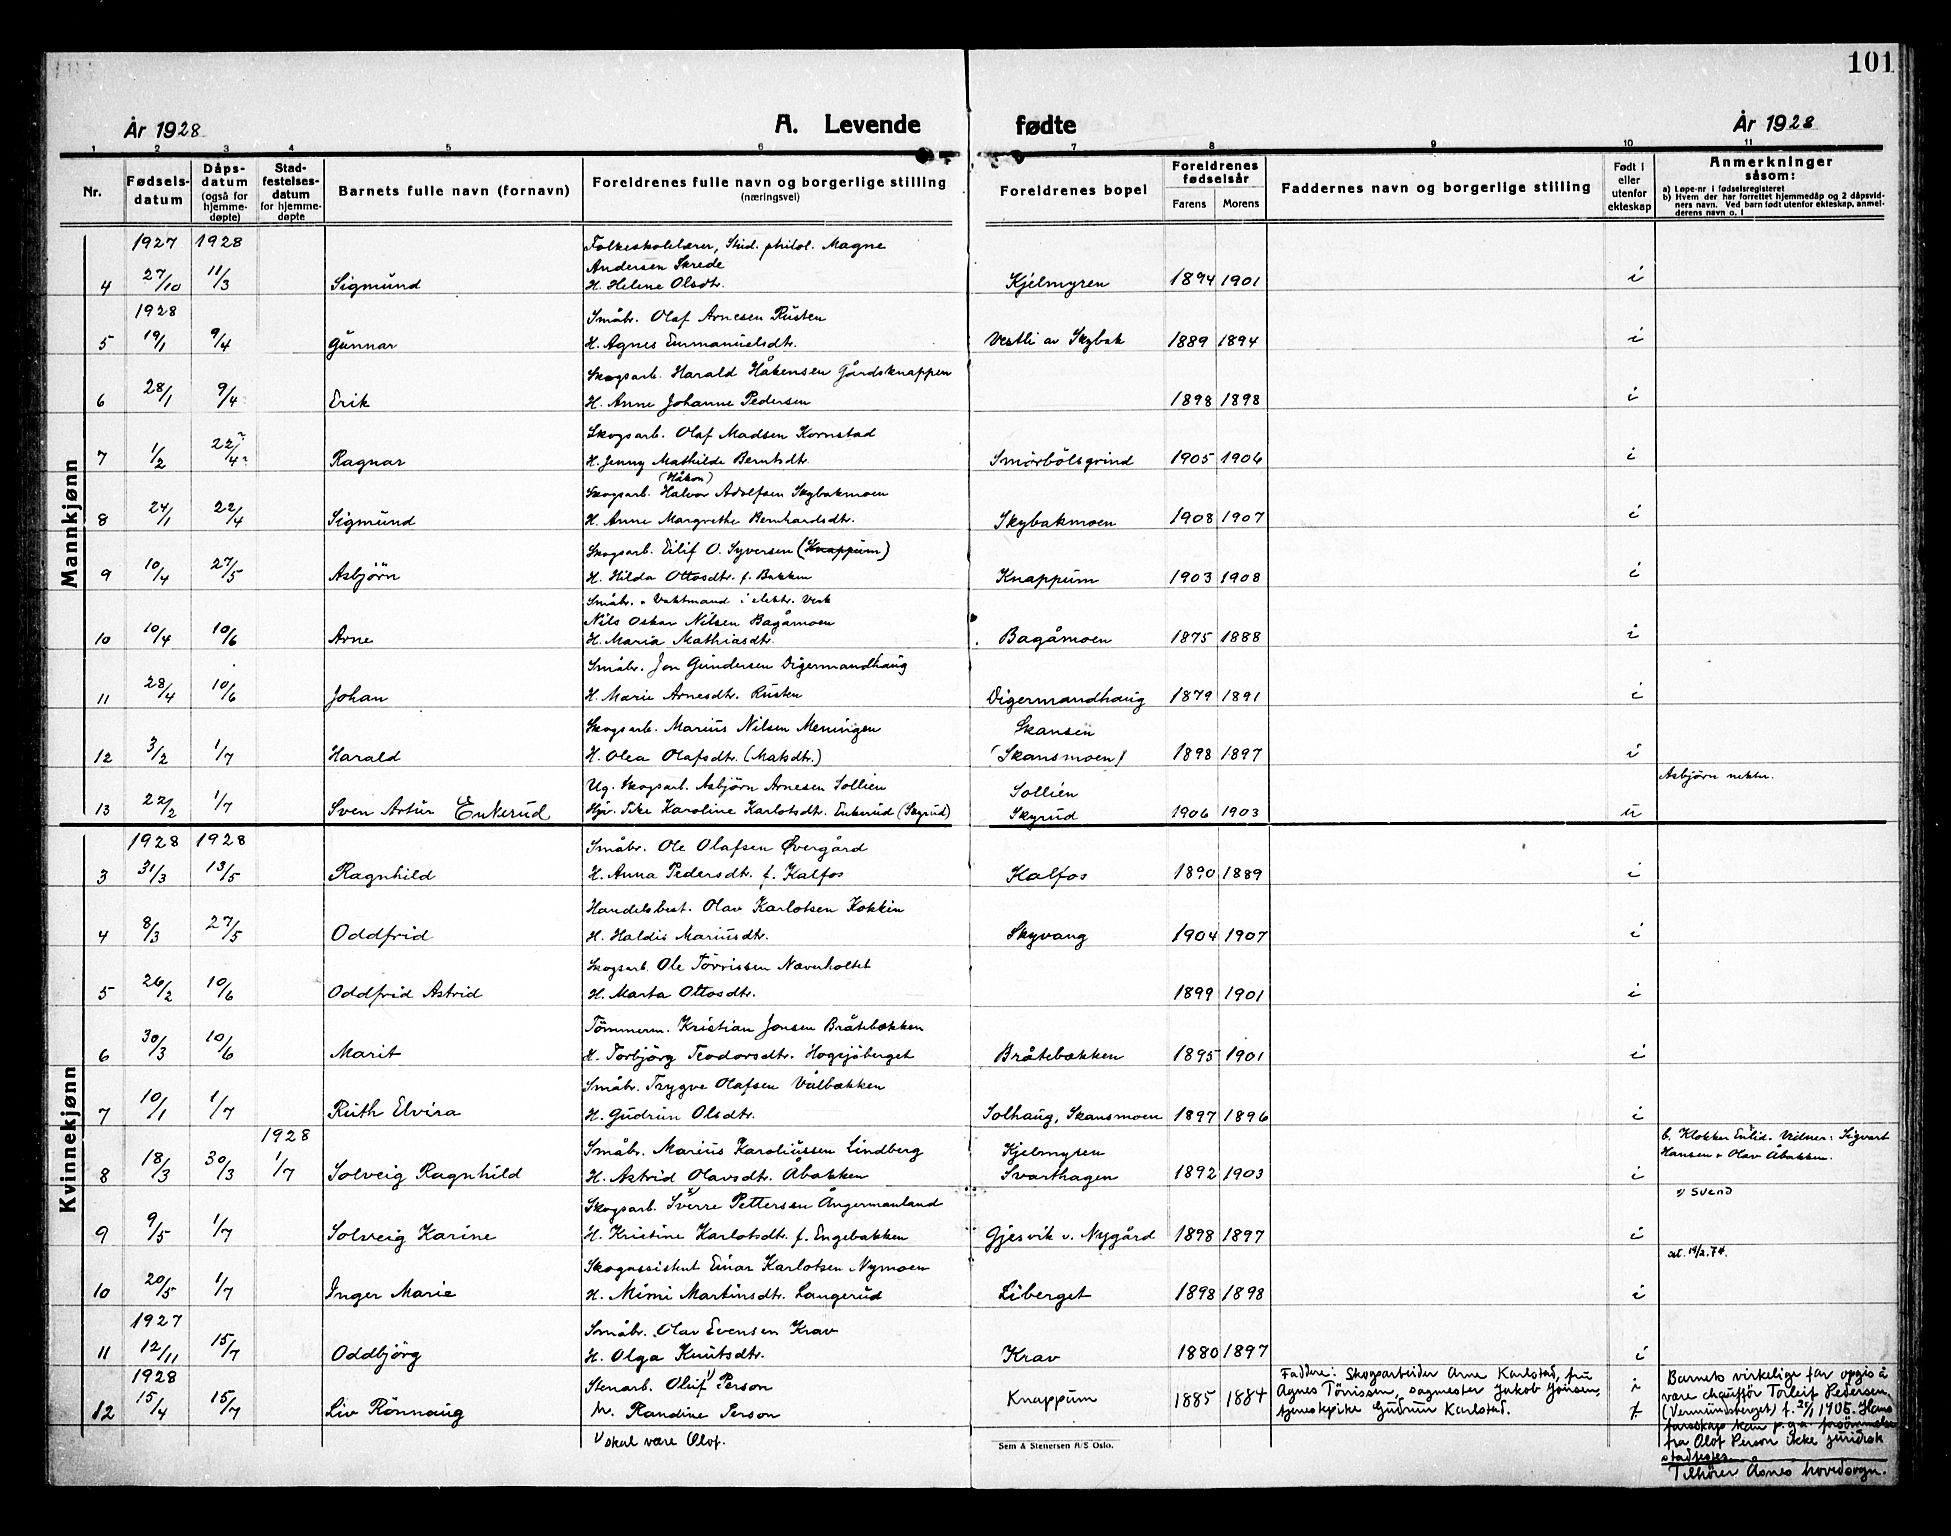 101
År 1928
A. Levende fødte
År 1928
1 2 3 4 5 6 7 8 9 10 11
Nr. Fødsels-datum Dåps-datum (også for hjemme-døpte) Stad-festelses-datum for hjemme-døpte Barnets fulle navn (fornavn) Foreldrenes fulle navn og borgerlige stilling (næringsvei) Foreldrenes bopel Foreldrenes fødselsår Farens Morens Faddernes navn og borgerlige stilling Født i eller utenfor ekteskap Anmerkninger såsom:
a) Løpe-nr i fødselsregisteret
b) Hvem der har forrettet hjemmedåp og 2 dåpsvidners navn. Ved barn født utenfor ekteskap, anmelderens navn o. l
Mannkjønn
1927 1928 Folkeskolelærer, Stud. philol. Magne
Andersen Skrede
4 27/10 11/3 Sigmund H. Helene Olsdtr. Kjelmyren 1894 1901 i
1928 Småbr. Olaf Arnesen Rusten
5 19/1 9/4 Gunnar H. Agnes Emmanuelsdtr. Vestli av Skybak 1889 1894 i
Skogsarb. Harald Håkensen Gårdsknappen
6 28/1 9/4 Erik H. Anne Johanne Pedersen 1898 1898 i
Skogsarb. Olaf Madsen Kornstad
7 1/2 22/4 Ragnar H. Jenny Mathilde Berntsdtr. Smörbölsgrind 1905 1906 i
(Håkon)
Skogsarb. Halvor Adolfsen Skybakmoen
8 24/1 22/4 Sigmund H. Anne Margrethe Bernhardsdtr. Skybakmoen 1908 1907 i
Skogsarb. Eilif O. Syversen (Knappum)
9 10/4 27/5 Asbjörn H. Hilda Ottosdtr. f. Bakken Knappum 1903 1908 i
Småbr. + Vaktmand i elektr. Verk
Nils Oskar Nilsen Bagåmoen
10 10/4 10/6 Arne H. Maria Mathiasdtr. Bagåmoen 1875 1888 i
Småbr. Jon Gundersen Digermandhaug
11 28/4 10/6 Johan H. Marie Arnesdtr. Rusten Digermandhaug 1879 1891 i
Skogsarb. Marius Nilsen Meningen Skansen
12 3/2 1/7 Harald H. Olea Olafsdtr. (Matsdtr.) (Skansmoen) 1898 1897 i
Ug. Skogsarb. Asbjörn Arnesen Sollien Sollien Asbjörn nekter.
13 22/2 1/7 Sven Artur Enkerud Hjv. Tike Karoline Karlotsdtr. Enkerud (Skyrud) Skyrud 1906 1903 u
Kvinnekjønn
1928 1928 Småbr. Ole Olafsen Øvergård
3 31/3 13/5 Ragnhild H. Anna Pedersdtr. f. Kalfos Kalfos 1890 1889 i
Handelsbest. Olav Karlotsen Kokkin
4 8/3 27/5 Oddfrid H. Haldis Mariusdtr. Skyvang 1904 1907 i
Skogsarb. Ole Törrissen Næverholtet
5 26/2 10/6 Oddfrid Astrid H. Marta Ottosdtr. 1899 1901 i
Tömmerm. Kristian Jonsen Bråtebækken
6 30/3 10/6 Marit H. Torbjörg Teodorsdtr. Hogsjöberget Bråtebækken 1895 1901 i
Småbr. Trygve Olafsen Vålbækken
7 10/1 1/7 Ruth Elvira H. Gudrun Olsdtr. Solhaug, Skansmoen 1897 1896 i
1928 Småbr. Marius Karoliussen Lindberg Kjelmyren b. Klokker Enlid. Vidner: Sigvart
8 18/3 30/3 1/7 Solveig Ragnhild H. Astrid Olavsdtr. Åbakken Svarthagen 1892 1903 i Hansen + Olav Åbakken.
Skogsarb. Sverre Pettersen Ångermanland 1) Svend
9 9/5 1/7 Solveig Karine H. Kristine Karlotsdtr. f. Engebakken Gjesvik v. Nygård 1898 1897 i
Skogassistent Einar Karlotsen Nymoen at. 19/2.74.
10 20/5 1/7 Inger Marie H. Mimi Martinsdtr. Langerud Liberget 1898 1898 i
1927 Småbr. Olav Evensen Krav
11 12/11 15/7 Oddbjörg H. Olga Knutsdtr. Krav 1880 1897 i
1928 Stenarb. Oluf 1) Person
12 15/4 15/7 Liv Rönnaug h. Randine Person Knappum 1885 1884 i
Faddere: Skogsarbeider Arne Karlstad, fru
Agnes Törrissen, sagmester Jakob Jonsen,
tjenestepike Gudrun Karlstad.
Barnets virkelige far opgis å
være chaufför Torleif Pedersen,
(Vermundsberget) f. 20/1 1905. Hans
farsskap kan p.g.a. forsömmelse
fra Olof Person ikke juridisk
stadfestes.
Tilhörer Åsnes hovedsogn.
1) skal være Olof.
Sem & Stenersen A/S Oslo.